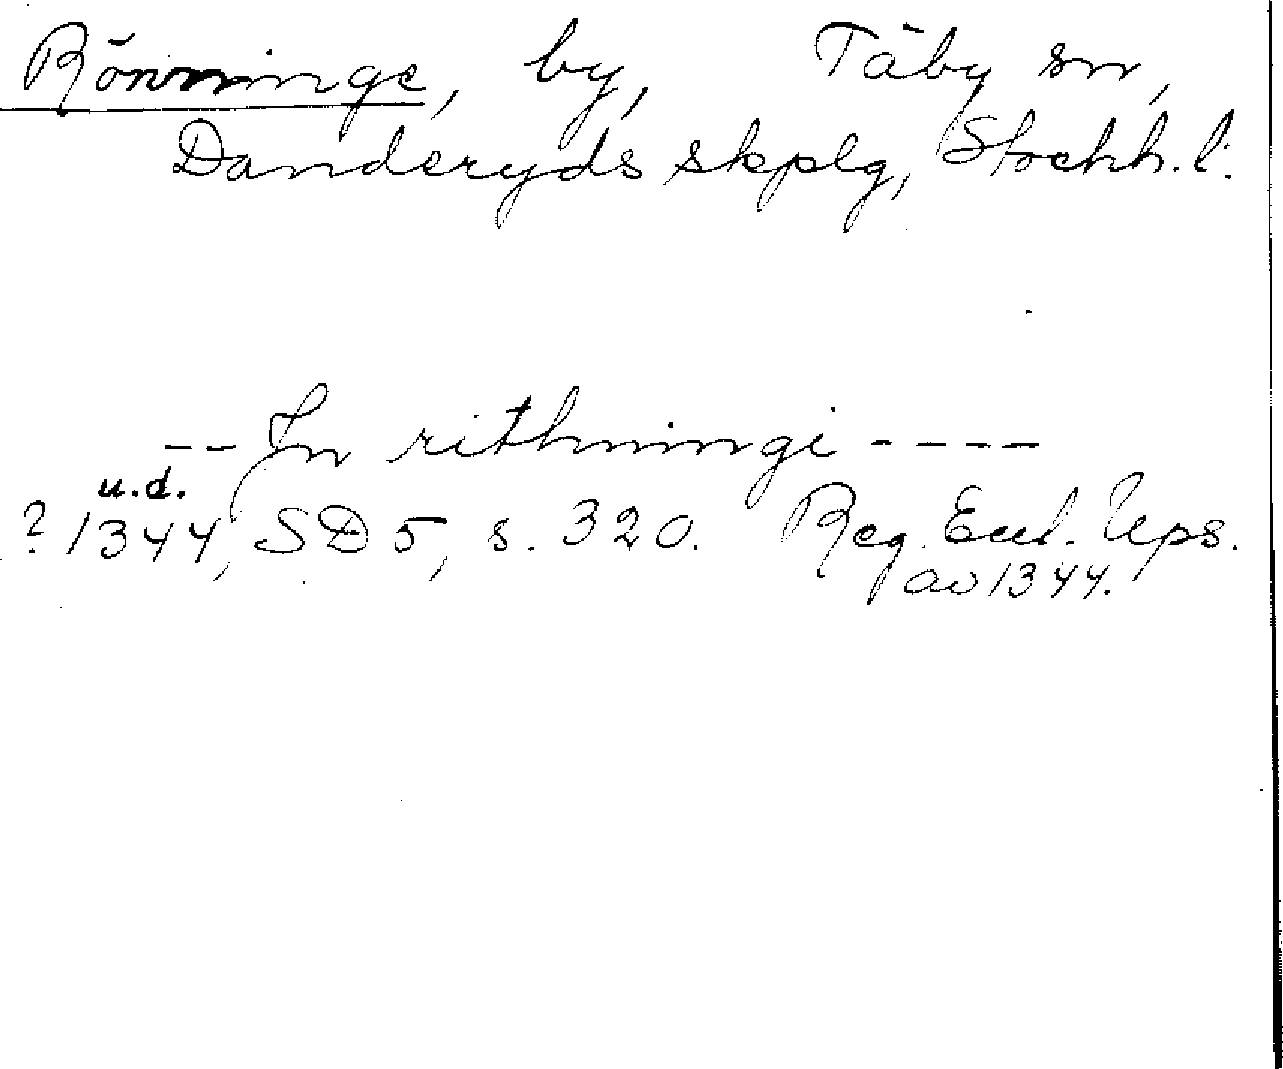 Rönninge, by, Täby sn,
Danderyds skplg, Stockh. l.
-- In rithningi ----
u.d.
? 1344, SD 5, s. 320. Reg. Eccl. Ups.
av 1344.